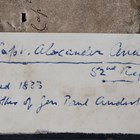 Capt. Alexander And
52nd Reg
ed 1823
of Gen Paul Anderso